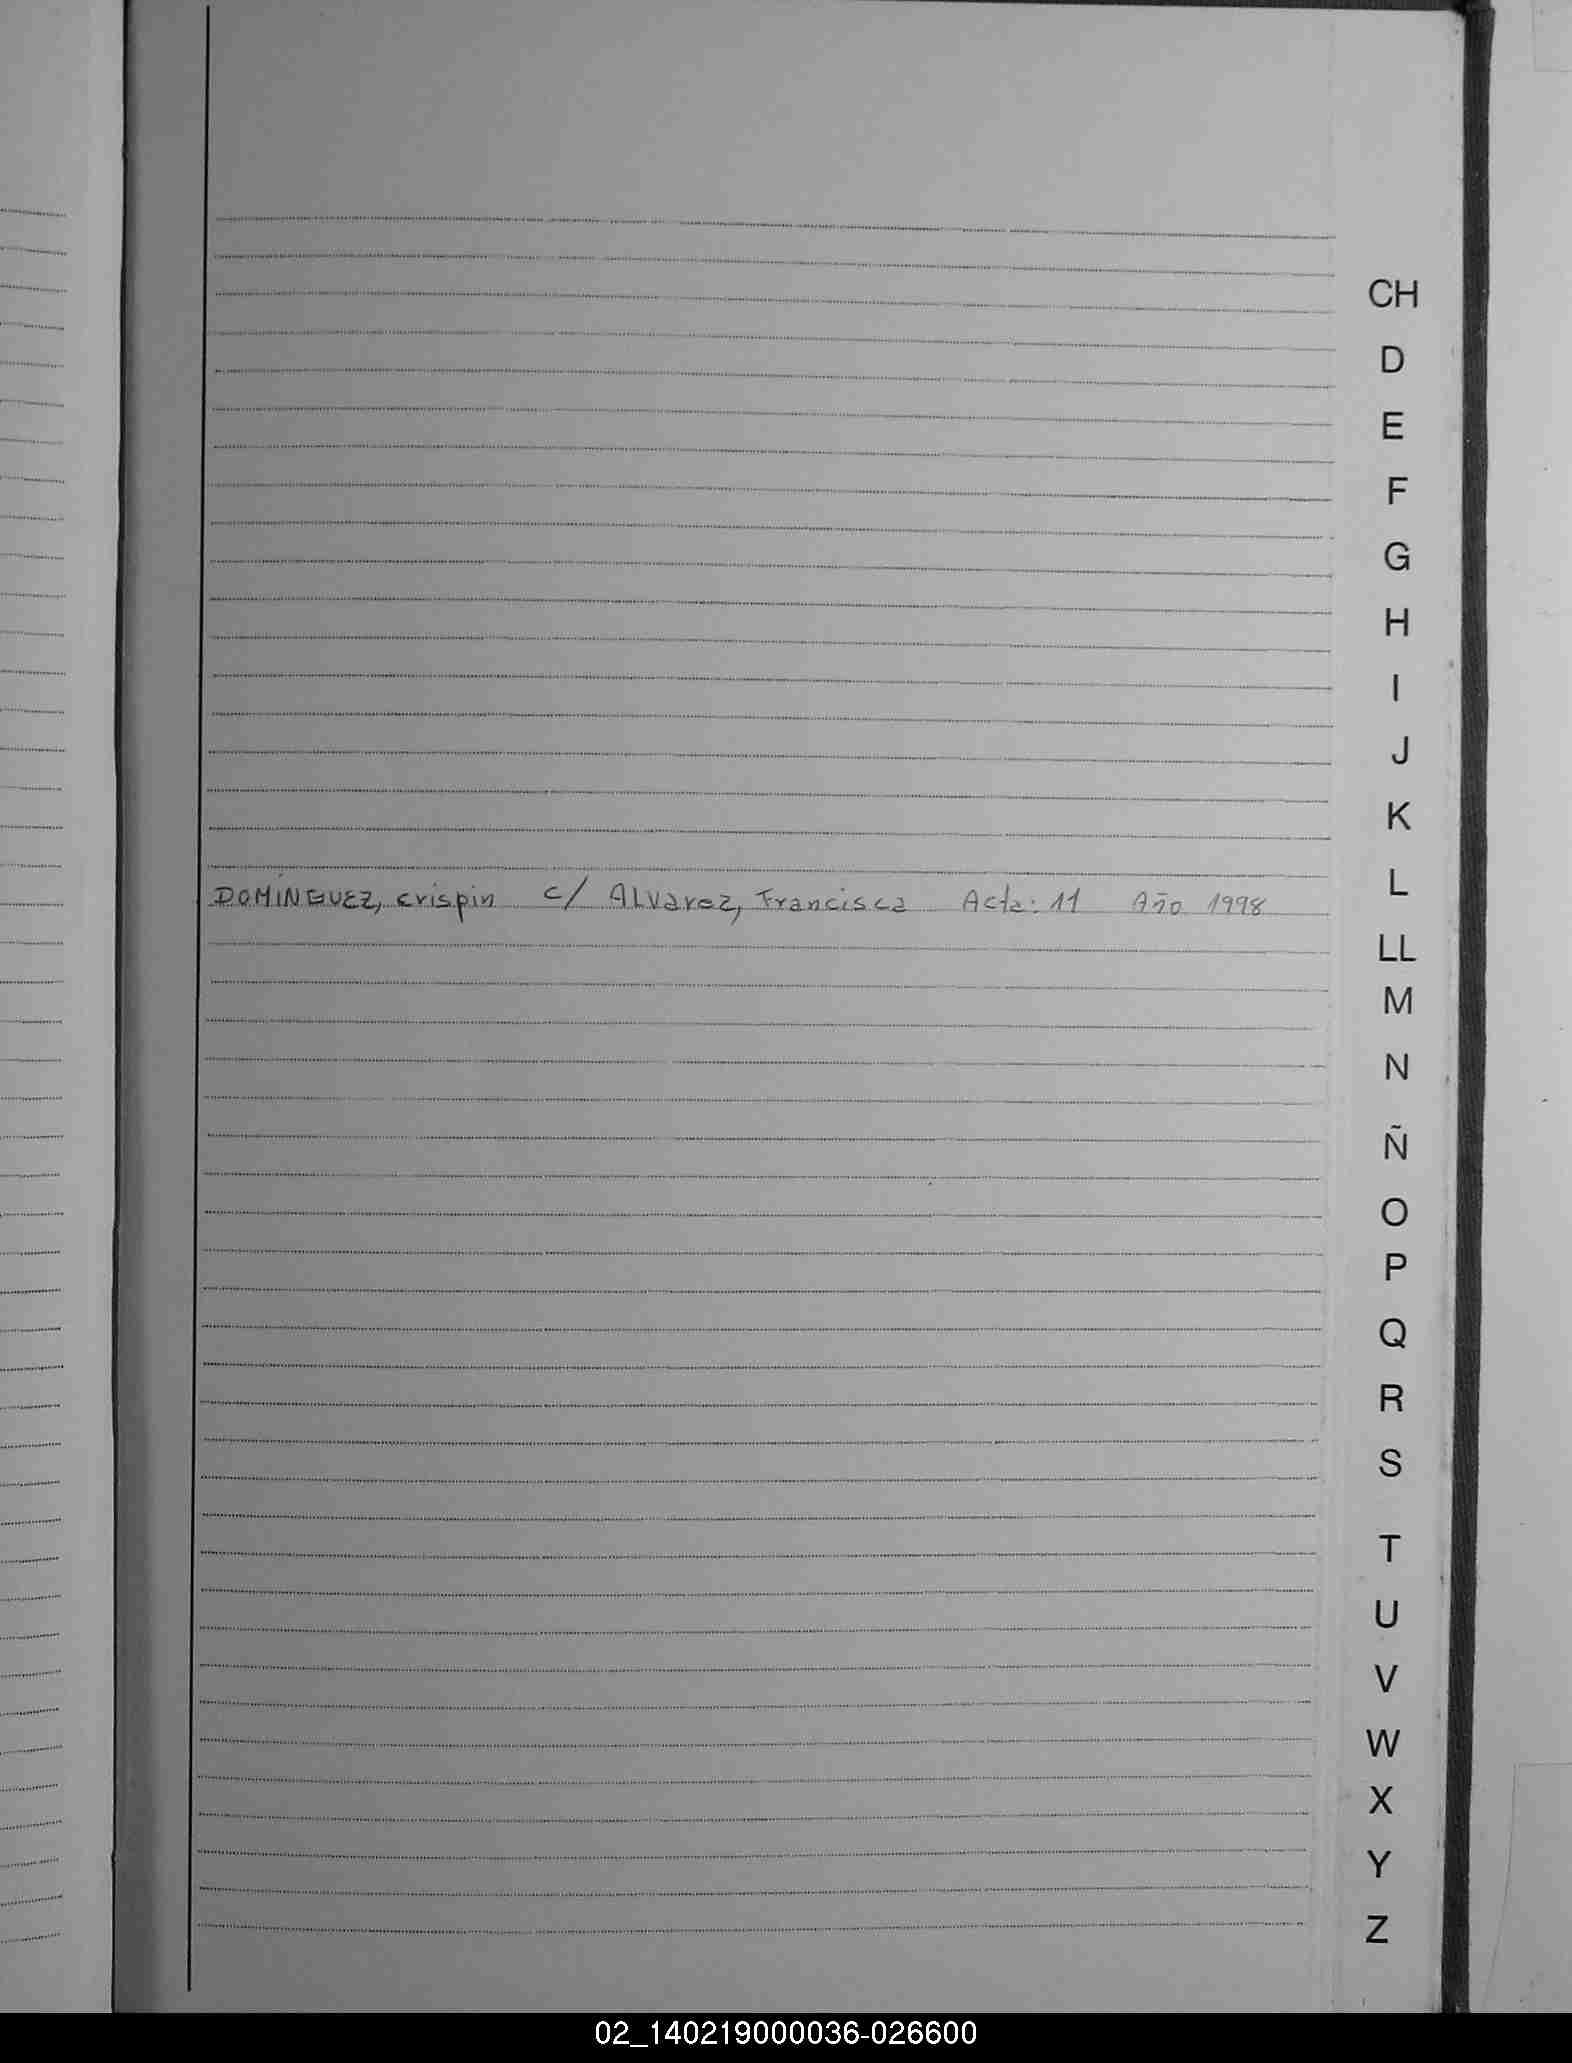 CH
D
E
F
G
H
I
J
K
L
DOMÍNGUEZ, crispin c/ ALvarez, Francisca Acta: 11 Año 1998
LL
M
N
Ñ
O
P
Q
R
S
T
U
V
W
X
Y
Z
02_140219000036-026600